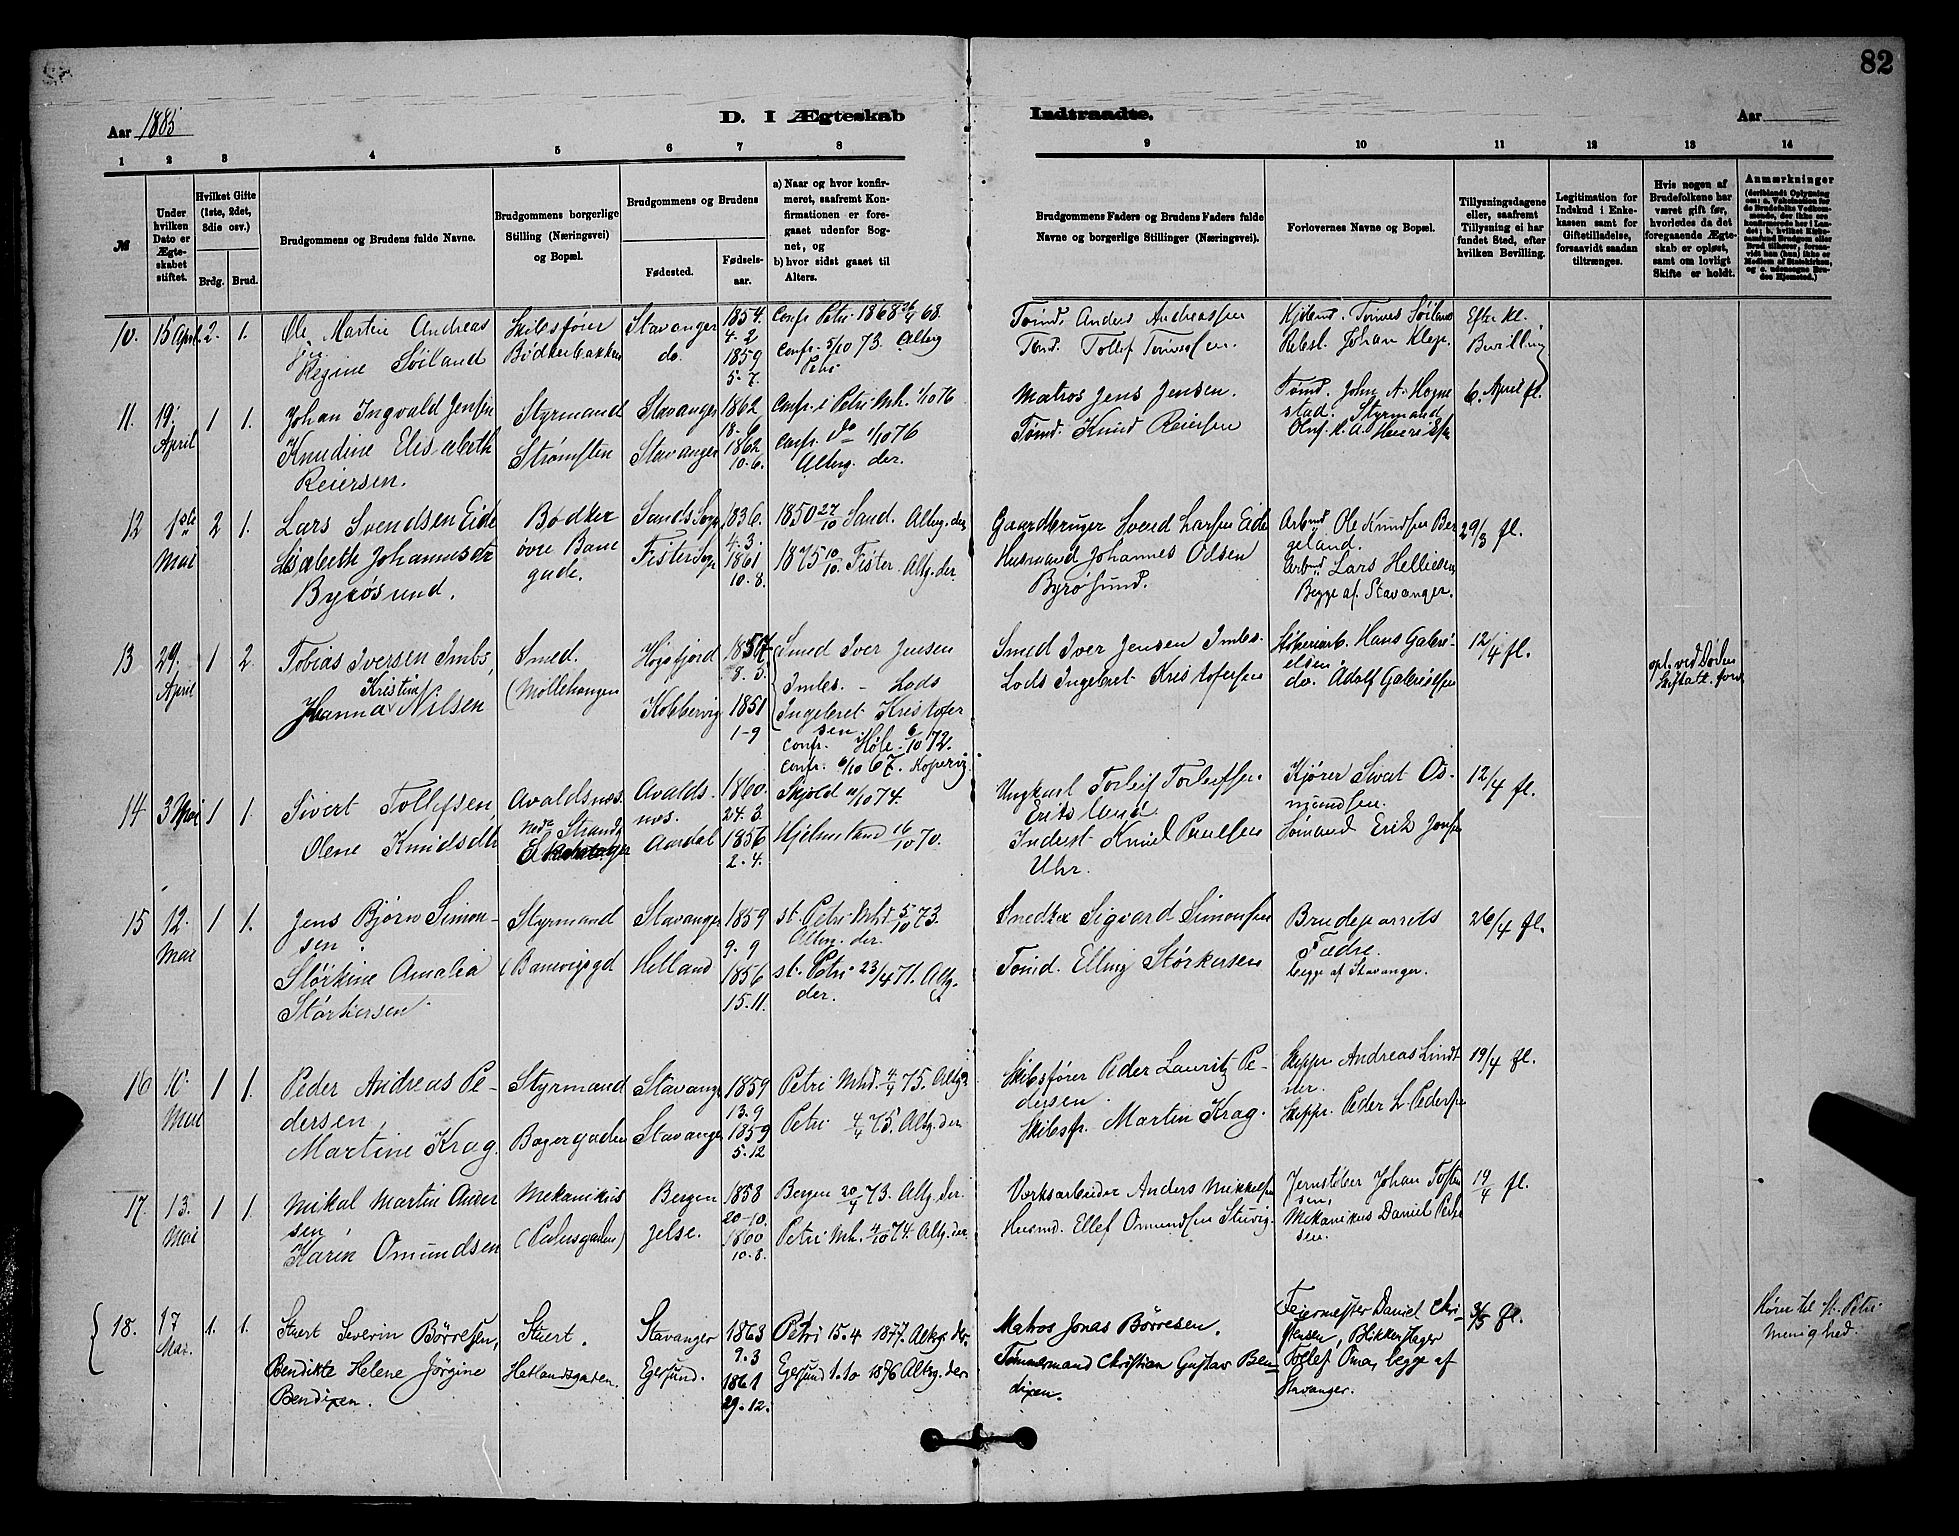 82
Aar 1885
D. I Ægteskab Indtraadte.
Aar
1 2 3 4 5 6 7 8 9 10 11 12 13 14
№
Under hvilken Dato er Ægteskabet stiftet.
Hvilket Gifte (1ste, 2det, 3die osv.)
Brdg. Brud.
Brudgommens og Brudens fulde Navne.
Brudgommens borgerlige Stilling (Næringsvei) og Bopæl.
Brudgommens og Brudens
Fødested.
Fødselsaar.
a) Naar og hvor konfirmeret, saafremt Konfirmationen er foregaaet udenfor Sognet, og
b) hvor sidst gaaet til Alters.
Brudgommens Faders og Brudens Faders fulde Navne og borgerlige Stillinger (Næringsvei).
Forlovernes Navne og Bopæl.
Tillysningsdagene eller, saafremt Tillysning ei har fundet Sted, efter hvilken Bevilling.
Legitimation for Indskud i Enkekassen samt for Giftetilladelse, forsaavidt saadan tiltrænges.
Hvis nogen af Brudefolkene har været gift før, hvorledes da det foregaaende Ægteskab er opløst, samt om lovligt Skifte er holdt.
Anmærkninger
10. 15 April. 2. 1. Ole Martin Andreas
Regine Söiland
Skibsfører
Bødkerbakken
Stavanger
do.
1854.
4. 2
1859
5. 7.
Conf. Petri 1868 68.
Conf. 5/10 73. Alterg
Petri
Tømd. Anders Andreassen
Tømd. Tollef Tønnesen.
Tønnes Söiland
Johan Klep.
Efter kl.
Bevilling
11. 19. April 1 1. Johan Ingvald Jensen
Knudine Elisabeth
Reiersen.
Styrmand
Strømsten
Stavanger
Stavanger
1862
18. 6
1862
10. 6.
Conf. i Petri Mh. 1/10 76
Conf. do 1/10 76
Alterg. der.
Matros Jens Jensen.
Tømd. Knud Reiersen
Tømd. John A. Hognestad. Styrmand
6. April fl.
12 1ste Mai 2 1. Lars Svendsen Eide
Elisabeth Johannesdtr
Byrøsund.
Bødker
øvre Banegade.
Sands Sogn
Fister Sogn
1836.
4. 3.
1861
10. 8.
1850 27/10 Sand. Altrg. der
1875 10/10 Fister. Altg. der.
Gaardbruger Svend Larsen Eide
Husmand Johannes Olsen
Byrøsund.
Arbmd Ole Knudsen Bergeland.
Arbmd Lars Helliesen
Begge af Stavanger.
29/3 fl.
13 29. April 1 2. Tobias Iversen Imbs,
Johanna Kristine Nilsen
Smed.
(Møllehaugen
Høgsfjord
Kobbervig
1857
8. 5.
1851
1-9
Smed Iver Jensen
Imbs. - Lods
Ingebret Kristofersen
Conf. Høle 6/10 72.
Conf. 6/10 67. Kopervig.
Smed Iver Jensen Imbs.
Lods Ingebret Kristofersen
Støperiarb. Hans Gabrielsen.
do. Adolf Gabrielsen
12/4 fl.
opl. ved Døden
Skifteatt. forev.
14 3 Mai 1 1. Sivert Tollefsen,
Olene Knudsdtr
Avaldsnes.
nedr Strandg
Avaldsnes.
Aardal
1860.
24. 3.
1856
2. 4.
Skjold 11/10 74.
Hjelmeland 16/10 70.
Ungkarl Torleif Torleifsen
Eriksland
Inderst Knud Paulsen
Uhr.
Kjører Sivert Osmundsen.
Sømand Erik Jonsen
12/4 fl.
15 12. Mai 1 1. Jens Bjørn Simonsen.
Størkine Amalia
Størkersen
Styrmand
(Banevigsgd
Stavanger
Helland
1859
9. 9
1856
15. 11.
st. Petri Mhd. 5/10 73.
Alterg. der.
st. Petri 23/4 71. Altg.
der.
Snedker Sigvard Simonsen
Tømd. Elling Størkersen
Brudeparrets
Fædre.
begge af Stavanger.
26/4 fl.
16 10. Mai 1 1. Peder Andreas Pedersen,
Martine Krag.
Styrmand
Bagergaden
Stavanger
Stavanger
1859
13. 9
1859
5. 12
Petri Mhd. 4/4 75. Altg.
Petri 4/4 75. Altg. der
Skibsfører Peder Lauritz Pedersen.
Skibsfr. Martin Krag.
Skippr Andreas Lindtner.
Skippr. Peder L. Pedersen
19/4 fl.
17. 13. Mai 1 1. Mikal Martin Andersen
Karen Omundsen
Mekanikus
(Pedersgaden)
Bergen
Jelse.
1858
20-10.
1860
10. 8.
Bergen 20/4 73. Altg. der.
Petri Mh. 4/10 74. Altg. der.
Værksarbeider Anders Mikkelsen
Husmd. Ellef Omundsen Stuvig.
Jernstøber Johan Toftensen,
Mekanikus Daniel Pedersen.
19/4 fl.
18. 17 Mai. 1. 1. Stuert Severin Börresen,
Bendikte Helene Jörgine
Bendixen.
Stuert.
Hetlandsgaden.
Stavanger
Egersund.
1863
9. 3
1861
29. 12.
Petri 15. 4 1877. Altrg. der.
Egersund 1. 10 1876 Altrg. der
Matros Jonas Börresen.
Tømmermand Christian Gustav Bendixen.
Feiermester Daniel Christensen, Blikkenslager
Tollef Oma, begge af
Stavanger.
3/5 fl.
Hører til St. Petri
menighed.